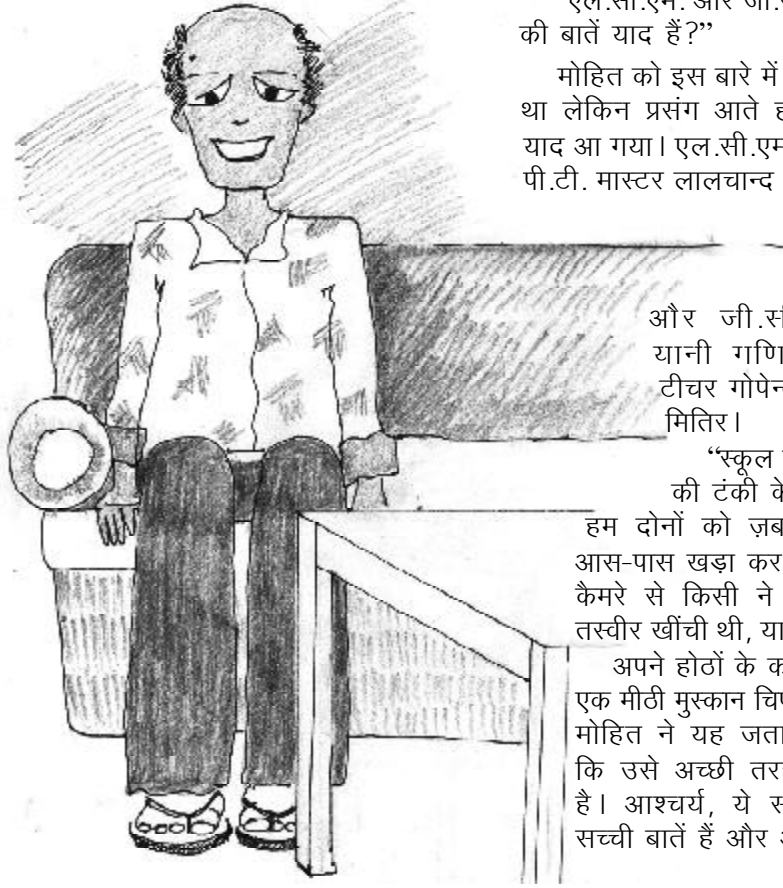 एल.सी.एम. और
की बातें याद हैं?”
मोहित को इस बारे में
था लेकिन प्रसंग आते
याद आ गया। एल.सी.एम
पी.टी. मास्टर लालचान्द
और
यानी
टीचर
मितिर।
“स्कूल
की टंकी के
हम दोनों को
आस-पास खड़ा कर
कैमरे से किसी ने
तस्वीर खींची थी,
अपने होठों के
एक मीठी मुस्कान
मोहित ने यह
कि उसे अच्छी
है। आश्चर्य, ये
सच्ची बातें हैं और